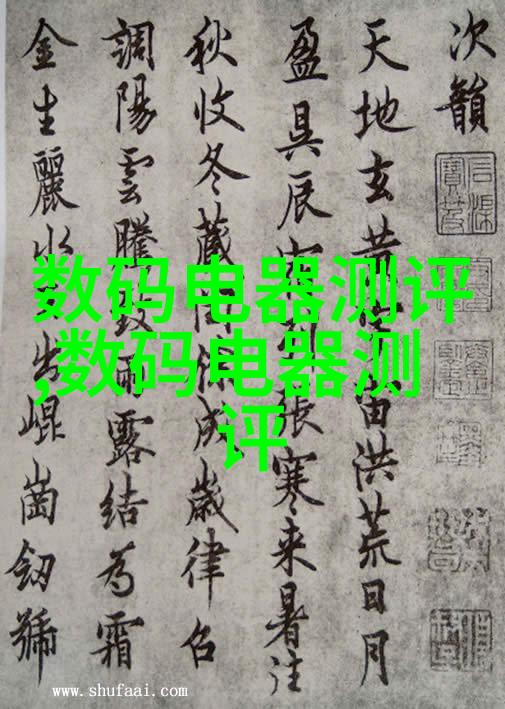 次韻
天地玄黃宇宙洪荒日月
盈昃辰宿列張寒来暑往
秋收冬藏閏餘成歲律召
調陽雲騰致雨露結為霜
金生麗水出崐崗劒號
数码电器测评
,数码电器测
评
www.shufaai.com